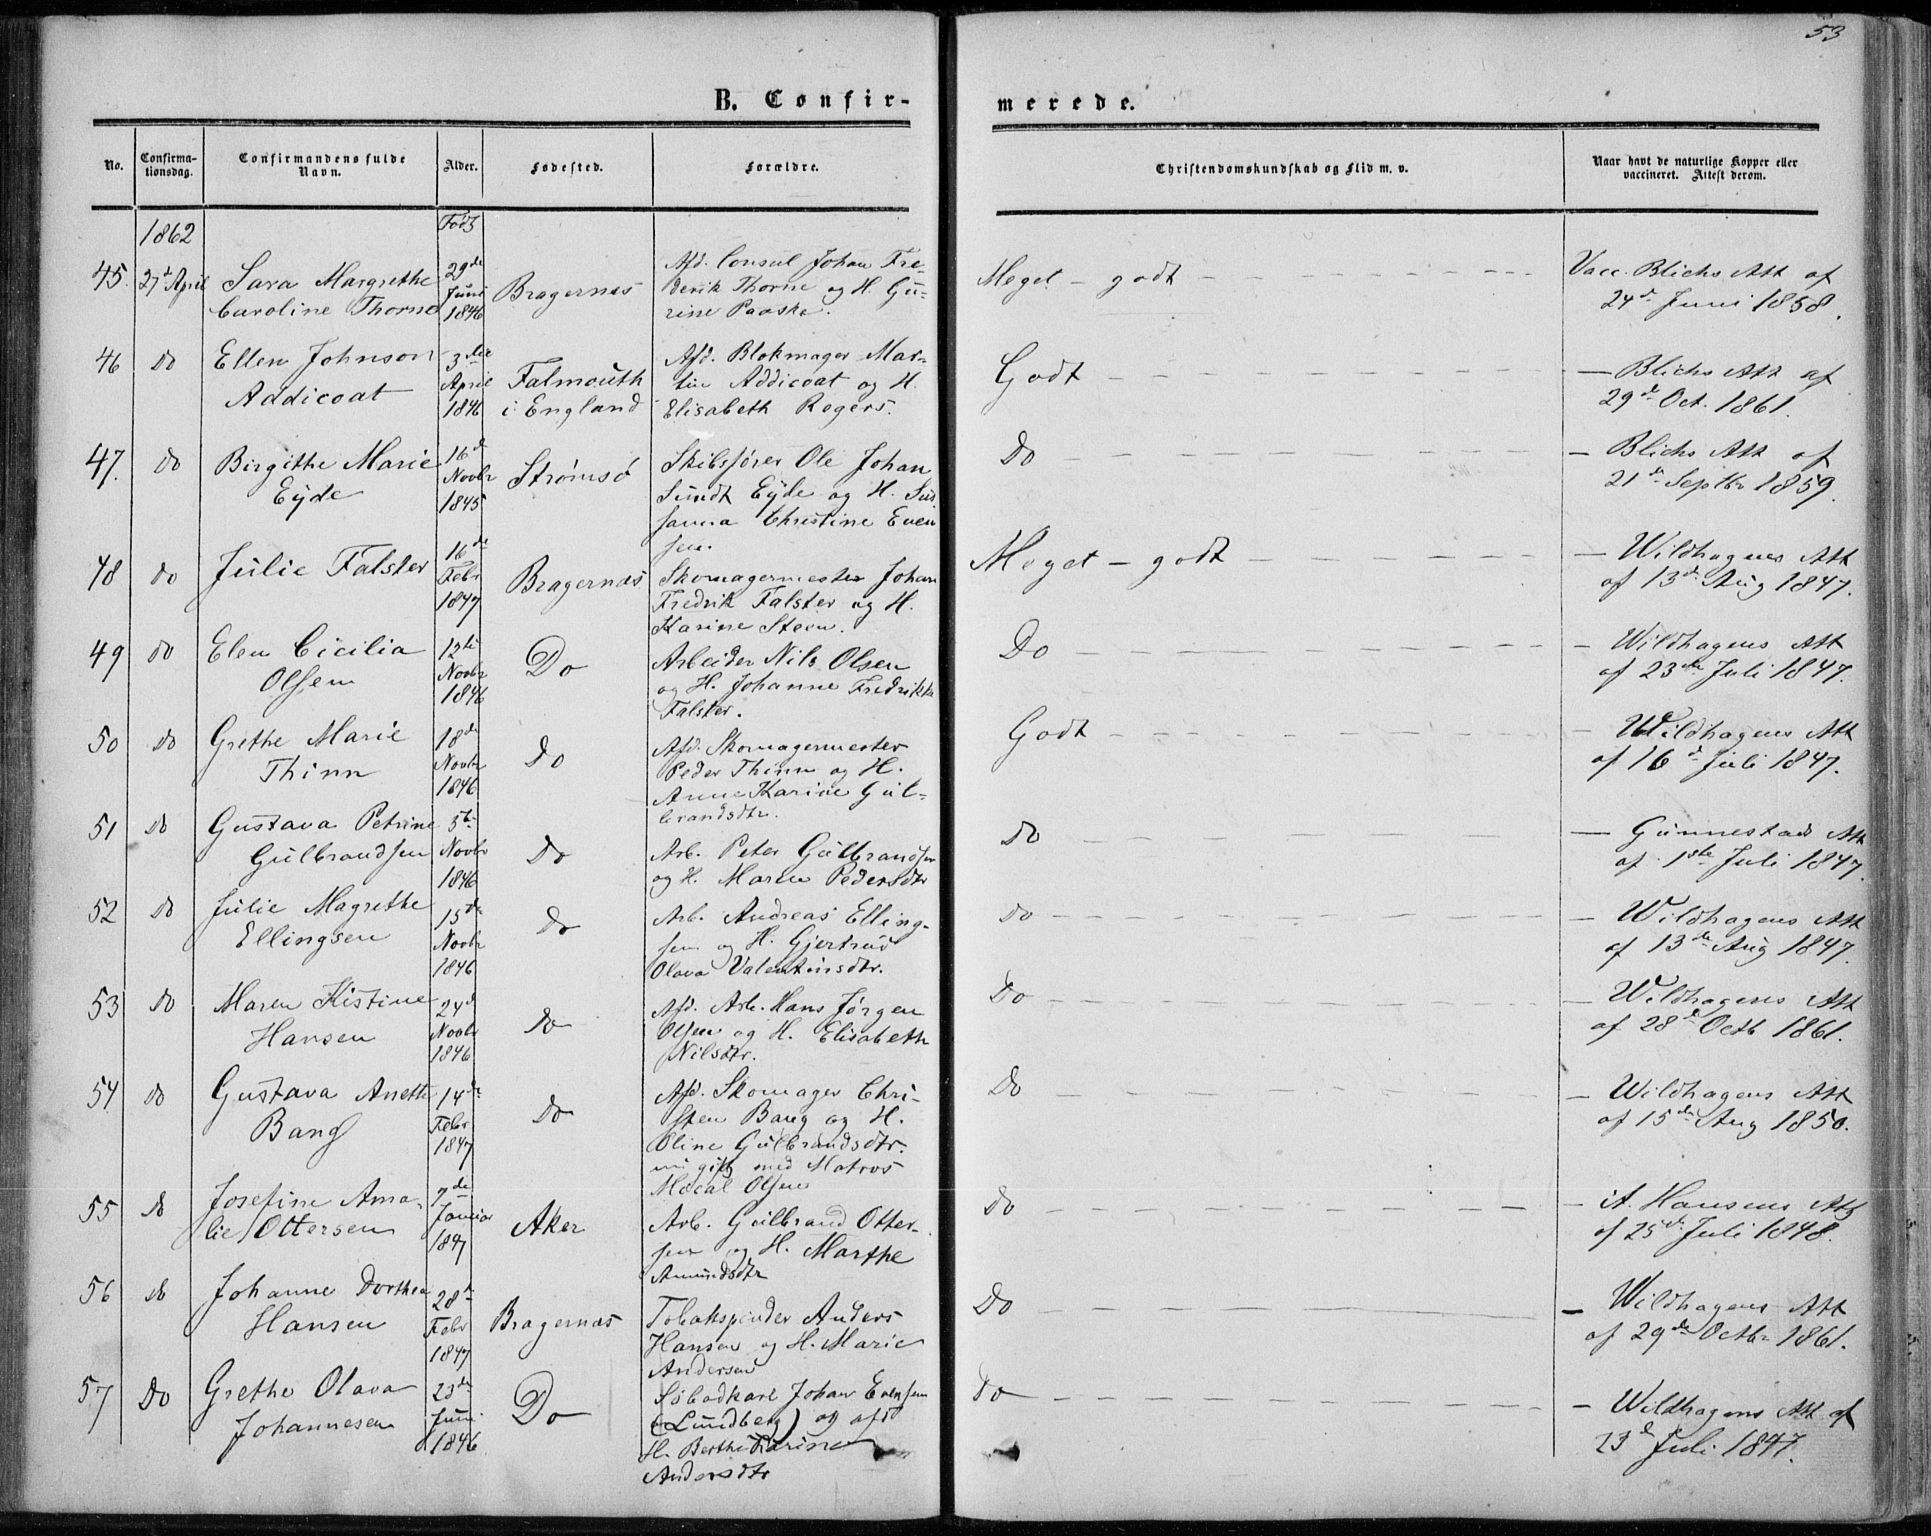 53
B. Confir-
merede.
No.
Confirma-
tionsdag.
Confirmandens fulde
Navn.
Alder.
Fødested.
Forældre.
Christendomskundskab og Flid m. v.
Naar havt de naturlige Kopper eller
vaccineret. Attest derom.
1862
Født
45. 27d April Sara Margrethe Caroline Thorne 29de Juni 1846 Bragernæs Afd. Consul Johan Fre-
derik Thorne og H. Gu-
rine Paaske.
Meget - godt
Vacc. Blichs Att af
24d Juni 1858.
46 do Ellen Johnson Addicoat 3die April 1846 Falmouth i England Afd. Blokmager Mar-
tin Addicoat og H.
Elisabeth Rogers.
Godt
— Blichs Att af
29d Oct. 1861.
47. do Birgithe Marie Eyde 16d Novbr 1845 Strømsø Skibsfører Ole Johan
Sundt Eyde og H. Su-
sanna Christine Even
sen.
Do
— Blichs Att af
21d Septbr 1859.
48 do Julie Falster 16de Febr 1847 Bragernæs Skomagermester Johan
Fredrik Falster og H.
Karine Steen.
Meget - godt
— Wildhagens Att
af 13de Aug 1847.
49 do Elen Cicilia Olsen 12te Novbr 1846 Do Arbeider Nils Olsen
og H. Johanne Fredrikke
Falster.
Do
— Wildhagens Att
af 23de Juli 1847.
50 do Grethe Marie Thinn 18de Novbr 1846 Do Afd. Skomagermester
Peder Thinn og H.
Anne Karine Gul-
brandsdtr.
Godt
— Wildhagens Att
af 16d Juli 1847.
51 do Gustava Petrine Gulbrandsen 5te Novbr 1846 Do Arb. Peter Gulbrandsen
og H. Maren Pedersdtr
Do
— Gunnestads Att
af 1ste Juli 1847.
52 do Julie Magrethe Ellingsen 15de Novbr 1846 Do Arb. Andreas Elling-
sen og H. Gjertrud
Olava Valentinsdtr.
Do
— Wildhagens Att
af 13de Aug 1847.
53 do Maren Kistine Hansen 24d Novbr 1846 Do Afd. Arb. Hans Jørgen
Olsen og H. Elisabeth
Nilsdtr.
Do
— Wildhagens Att
af 28d Octb 1861.
54 do Gustava Anette Bang 14de Febr 1847 Do Afd. Skomager Chri-
sten Bang og H.
Oline Gulbrandsdtr.
nu gift med Matros
Olsen
Do
— Wildhagens Att
af 15de Aug 1850.
55 do Josefine Ama-
lie Ottersen 7de Januar 1847 Aker Arb. Gulbrand Otter-
sen og H. Marthe
Amundsdtr
Do
— A. Hansens Att
af 25d Juli 1848.
56 do Johanne Dorthea Hansen 28d Febr 1847 Bragernæs Tobakspinder Anders
Hansen og H. Marie
Andersen
Do
— Wildhagens Att
af 29de Octbr 1861.
57 Do Grethe Olava Johannesen 23de Juni 1846 Do Johan Evensen
(Lundberg) og afd
H. Berthe Karine
Andersdtr
Do
— Wildhagens Att af
23d Juli 1847.